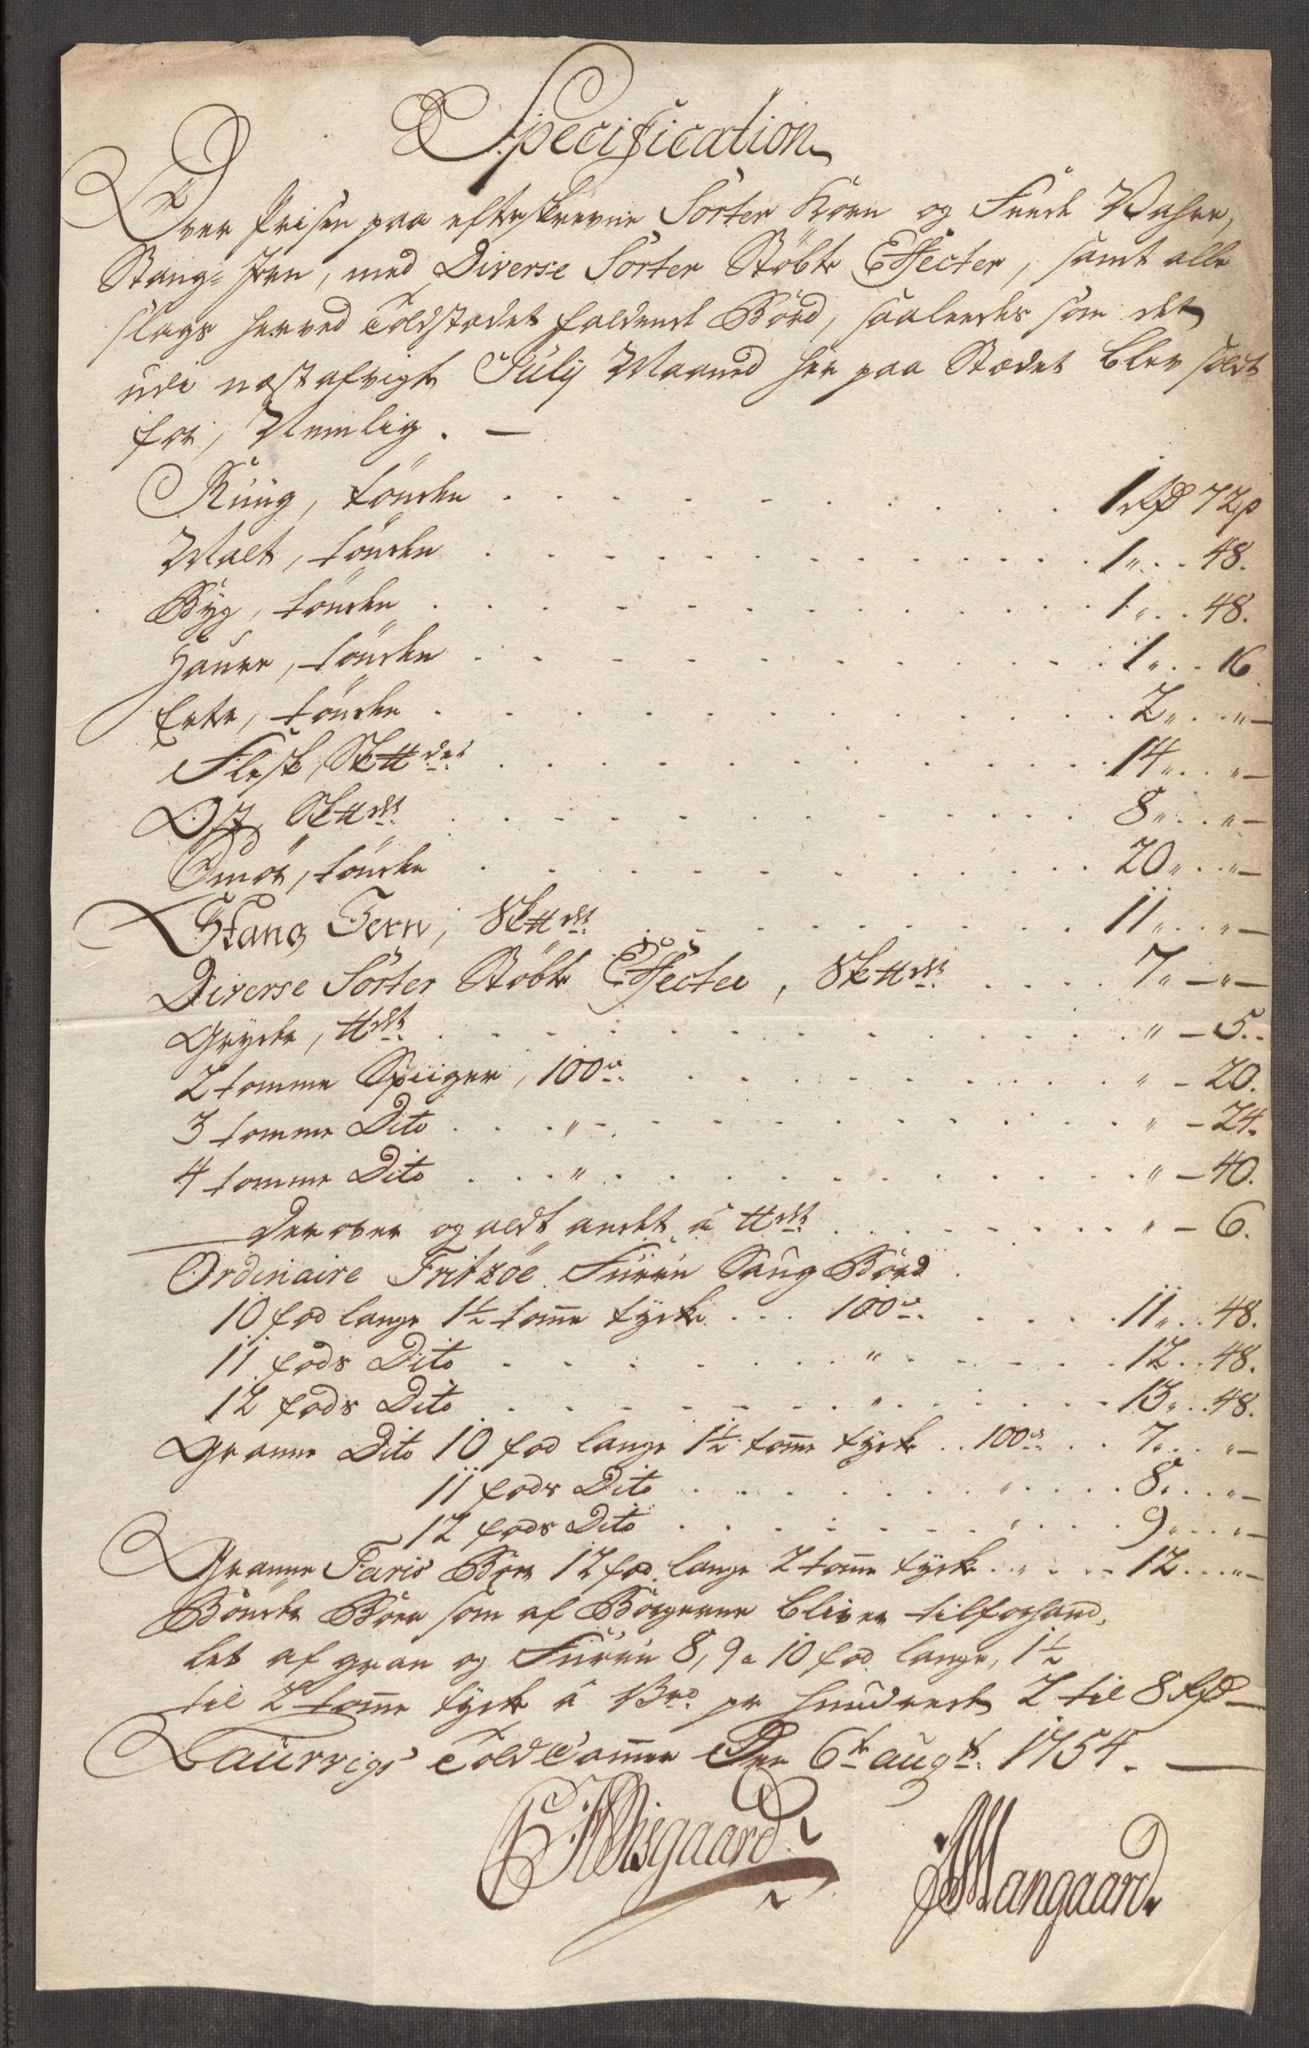 Specification
Over Prisen paa efterskrevne Sorter Korn og Feede Vahre,
Stang-Jern, med Diverse Sorter Støbte Effecter, samt alle
slags herved Toldstædet faldende Bord, saaleedes som det
udi næst afvigte July Maaned her paa Stædet blev soldt
for, Nemlig. —
Rüug, tönden . . . 1 Rd 72 s
Malt, tönden . . . 1 „ 48.
Byg, tönden . . . 1 „ 48.
Haure, tönden . . . 1 „ 16.
Erter, tönden . . . 2 „ „ —
Flesk, Sk℔det . . . 14 „ „ —
Ost, Sk℔det . . . 8 „ „ —
Smör, tönden . . . 20 „ „ —
Stang Jern, Sk℔det . . . 11 „ „ —
Diverse Sorter Støbte Effecter, Sk℔det . . . 7 „ — „ —
Gryder, ℔det . . . „ — 5.
2 tomme Spiiger, 100de . . . „ — 20.
3 tomme Dito . . . „ . . . „ — 24.
4 tomme Dito . . . „ . . . „ — 40.
derover og aldt andet, á ℔det . . . „ — 6.
Ordinaire Fritzöe Fürru Saug Bord.
10 fod lange 1½ tomme tyck . . . 100de . . . 11 „ 48.
11 fods Dito . . . „ . . . 12 . . 48.
12 fods Dito . . . „ . . . 13 „ 48.
Granne Dito 10 fod lange 1½ tomme tyck . . 100de . . 7 „ „ —
11 fods Dito . . . „ . . . 8 „ „ —
12 fods Dito . . . „ . . . 9 „ „ —
Granne Faris Bord 12 fod lange 2 tomme tyck . . „ . . 12 . . „ —
Bönder Bord som af Borgerne bliver tilforhand-
let af gran og Fürru 8, 9 a 10 fod lange, 1½
til 2 tomme tyck á Brd pr hundrede 2 til 8 Rd —
Laurvigs Told Cammer Den 6te augt: 1754. —
Wisgaard
Mangaard